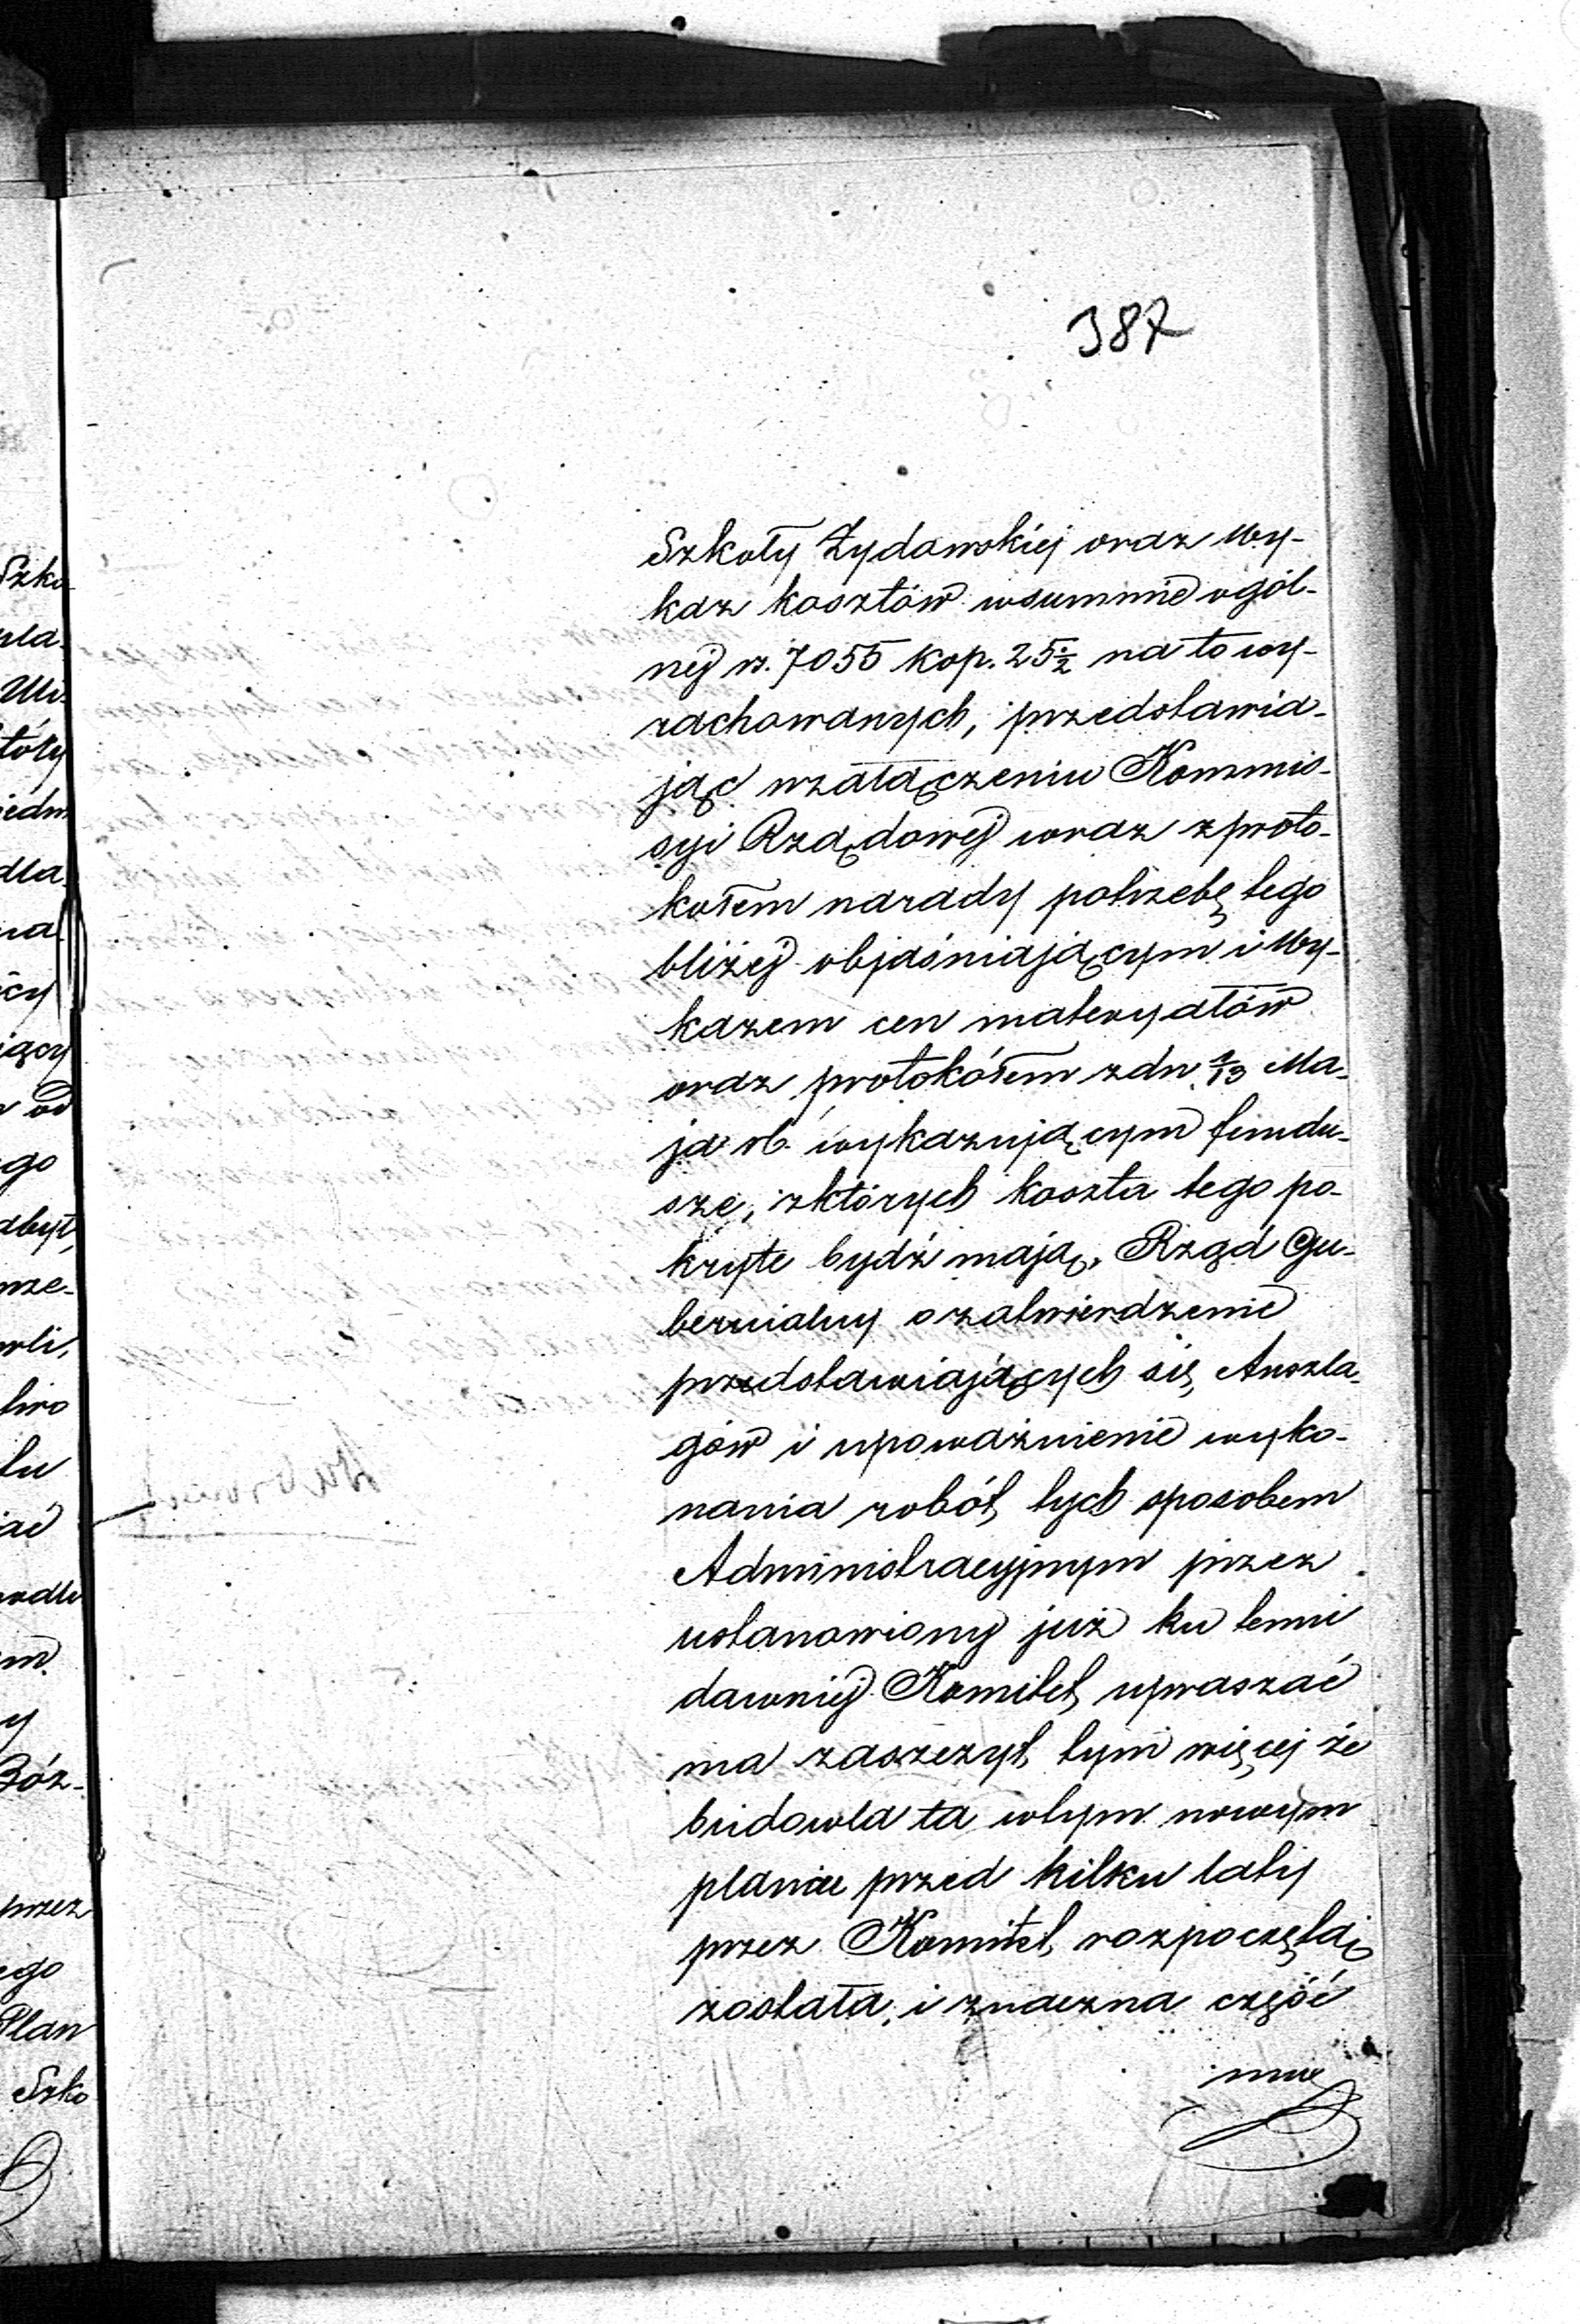 387
Szkoły Żydowskiéj oraz wy-
kaz kosztów wsummie ogól-
nej rs. 7055 kop. 25½ na to wy-
rachowanych, przedstawia-
jąc wzałączeniu Kommis-
syi Rządowej wraz z proto-
kołem narady potrzebę tego
bliżej objaśniającym i Wy-
kazem cen materyałów
oraz protokółem zdn 1/13 Ma-
ja rb. wykazującym fundu-
sze, zktórych koszta tego po-
kryte bydź mają, Rząd Gu-
bernialny o zatwierdzenie
przedstawiających się Anszla-
gów i upoważnienie wyko-
nania robót tych sposobem
Administracyjnym przez
ustanowiony już ku temu
dawniej Komitet upraszać
ma zaszczyt tym więcej że
budowla ta wtym nowym
planie przed kilku laty
przez Komitet rozpoczętą
została, i znaczna część